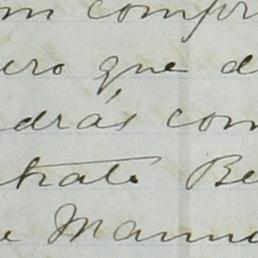 m compr
ero que d
drás com
trato Be
e Manu